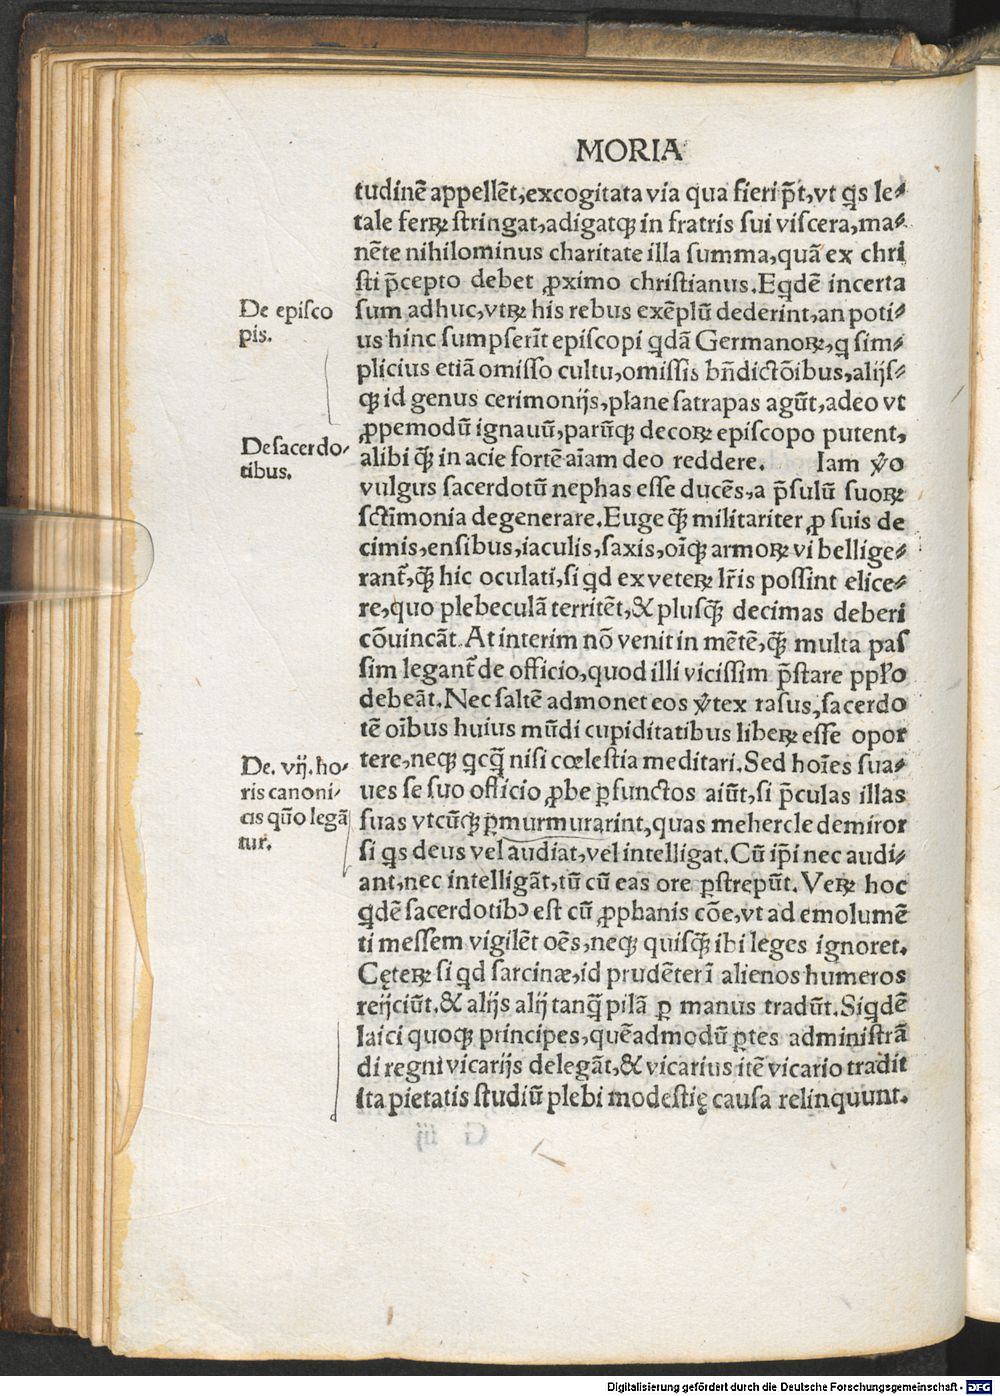 MORIA
tudinẽ appellẽt, excogitata via qua fieri p̃t, vt q̃s le⸗
tale ferꝝ stringat, adigatqꝫ in fratris sui viscera, ma⸗
nẽte nihilominus charitate illa summa, quã ex chri
sti p̃cepto debet ꝓximo christianus. Eqdẽ incerta
De episco
pis.
sum adhuc, vtꝝ his rebus exẽplũ dederint, an poti⸗
us hinc sumpserĩt episcopi qdã Germanoꝝ, q sim⸗
plicius etiã omisso cultu, omissis bñdictõibus, alijs⸗
qꝫ id genus cerimonijs, plane satrapas agũt, adeo vt
ꝓpemodũ ignauũ, parũqꝫ decoꝝ episcopo putent,
De sacerdo⸗
tibus.
alibi q̃ꝫ in acie fortẽ aĩam deo reddere. Iam v̾o
vulgus sacerdotũ nephas esse ducẽs, a p̃sulũ suoꝝ
sctĩmonia degenerare. Euge q̃ꝫ militariter ꝓ suis de
cimis, ensibus, iaculis, saxis, oĩqꝫ armoꝝ vi bellige⸗
rant᷑, q̃ꝫ hic oculati, si qd ex veteꝝ lr̃is possint elice⸗
re, quo plebeculã territẽt, & plusq̃ꝫ decimas deberi
cõuincãt. At interim nõ venit in mẽtẽ, q̃ꝫ multa pas
sim legant᷑ de officio, quod illi vicissim p̃stare ppło
debeãt. Nec saltẽ admonet eos v̾tex rasus, sacerdo
tẽ oĩbus huius mũdi cupiditatibus libeꝝ esse opor
De. vij. ho⸗
ris canoni⸗
cis quõ legã
tur.
tere, neqꝫ qcq̃ nisi cœlestia meditari. Sed hoĩes sua⸗
ues se suo officio ꝓbe ꝑfunctos aiũt, si p̃culas illas
suas vtcũqꝫ ꝑmurmurarint, quas mehercle demiror
si q̃s deus vel audiat, vel intelligat. Cũ ip̃i nec audi⸗
ant, nec intelligãt, tũ cũ eas ore ꝑstrepũt. Veꝝ hoc
qdẽ sacerdotibꝰ est cũ ꝓphanis cõe, vt ad emolumẽ
ti messem vigilẽt oẽs, neqꝫ quisq̃ꝫ ibi leges ignoret.
Cęteꝝ si qd sarcinæ, id prudẽter ĩ alienos humeros
reijciũt. & alijs alij tanq̃ pilã ꝑ manus tradũt. Siqdẽ
laici quoqꝫ principes, quẽadmodũ ꝑtes administrã
di regni vicarijs delegãt, & vicarius itẽ vicario tradit
ita pietatis studiũ plebi modestię causa relinquunt.
Digitalisierung gefördert durch die Deutsche Forschungsgemeinschaft - DFG